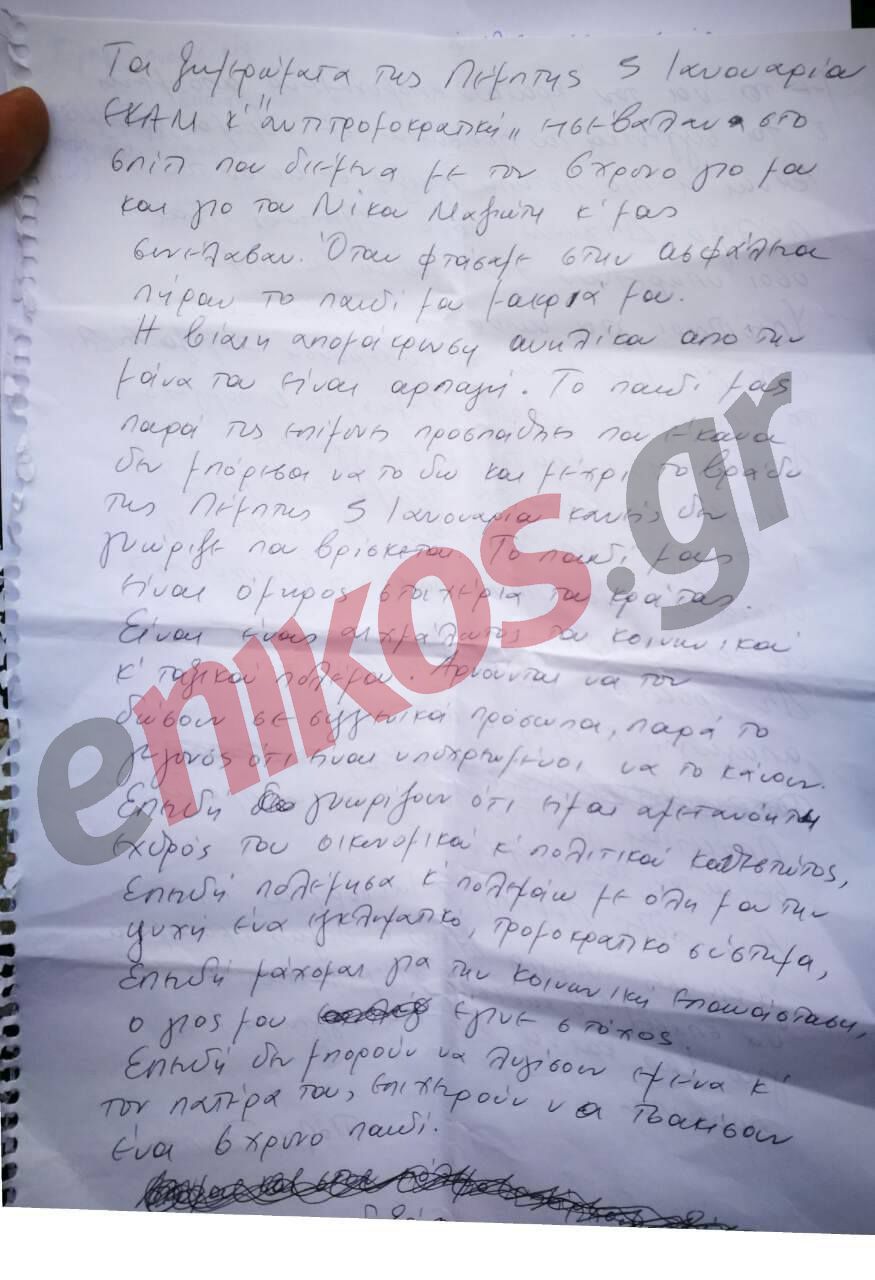 Τα ξημερώματα της Πέμπτης 5 Ιανουαρίου
ΕΚΑΜ κ' "αντιτρομοκρατική" εισέβαλαν στο
σπίτι που διέμενα με τον 6χρονο γιο μου
και γιο του Νίκου Μαζιώτη κ' μας
συνέλαβαν. Όταν φτάσαμε στην ασφάλεια
πήραν το παιδί μου μακριά μου.
Η βίαιη απομάκρυνση ανηλίκου από την
μάνα του είναι αρπαγή. Το παιδί μας
παρά τις επίμονες προσπάθειες που έκανα
δεν μπόρεσα να το δω και μέχρι το βράδυ
της Πέμπτης 5 Ιανουαρίου κανείς δεν
γνώριζε που βρίσκεται. Το παιδί μας
είναι όμηρος στα χέρια του κράτους.
Είναι ένας αιχμάλωτος του κοινωνικού
κ' ταξικού πολέμου. Αρνούνται να τον
δώσουν σε συγγενικά πρόσωπα, παρά το
γεγονός ότι είναι υποχρεωμένοι να το κάνουν.
Επειδή γνωρίζουν ότι είμαι αμετανόητη
εχθρός του οικονομικού κ' πολιτικού καθεστώτος,
Επειδή πολέμησα κ' πολεμάω με όλη μου την
ψυχή ένα εγκληματικό, τρομοκρατικό σύστημα,
Επειδή μάχομαι για την κοινωνική επανάσταση,
ο γιος μου έγινε στόχος.
Επειδή δεν μπορούν να λυγίσουν εμένα κ'
τον πατέρα του, επιχειρούν να τσακίσουν
ένα 6χρονο παιδί.
enikos.gr